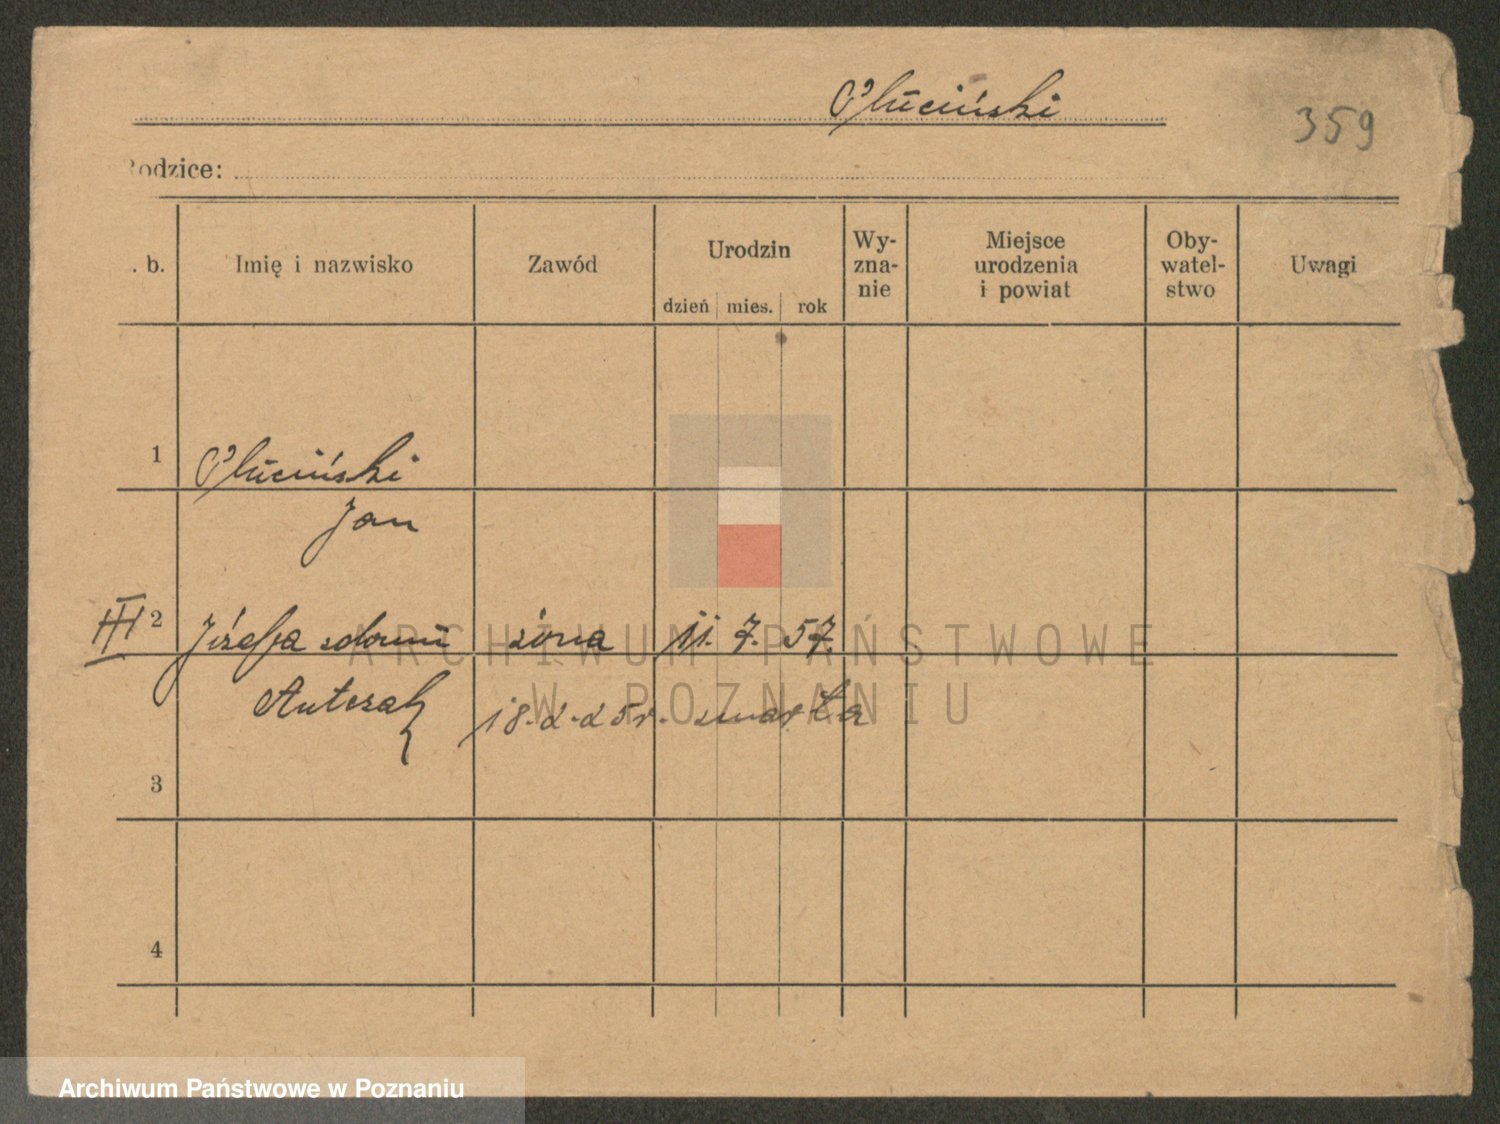 Pluciński
359
Rodzice:
. b.
Imię i nazwisko
Zawód
Urodzin
dzień mies. rok
Wy-
zna-
nie
Miejsce
urodzenia
i powiat
Oby-
watel-
stwo
Uwagi
1 Pluciński
Jan
III 2 Józefa z domu żona 11. 7. 57.
Antczak 18.2.25r. zmarła
3
4
ARCHIWUM PAŃSTWOWE
W POZNANIU
Archiwum Państwowe w Poznaniu